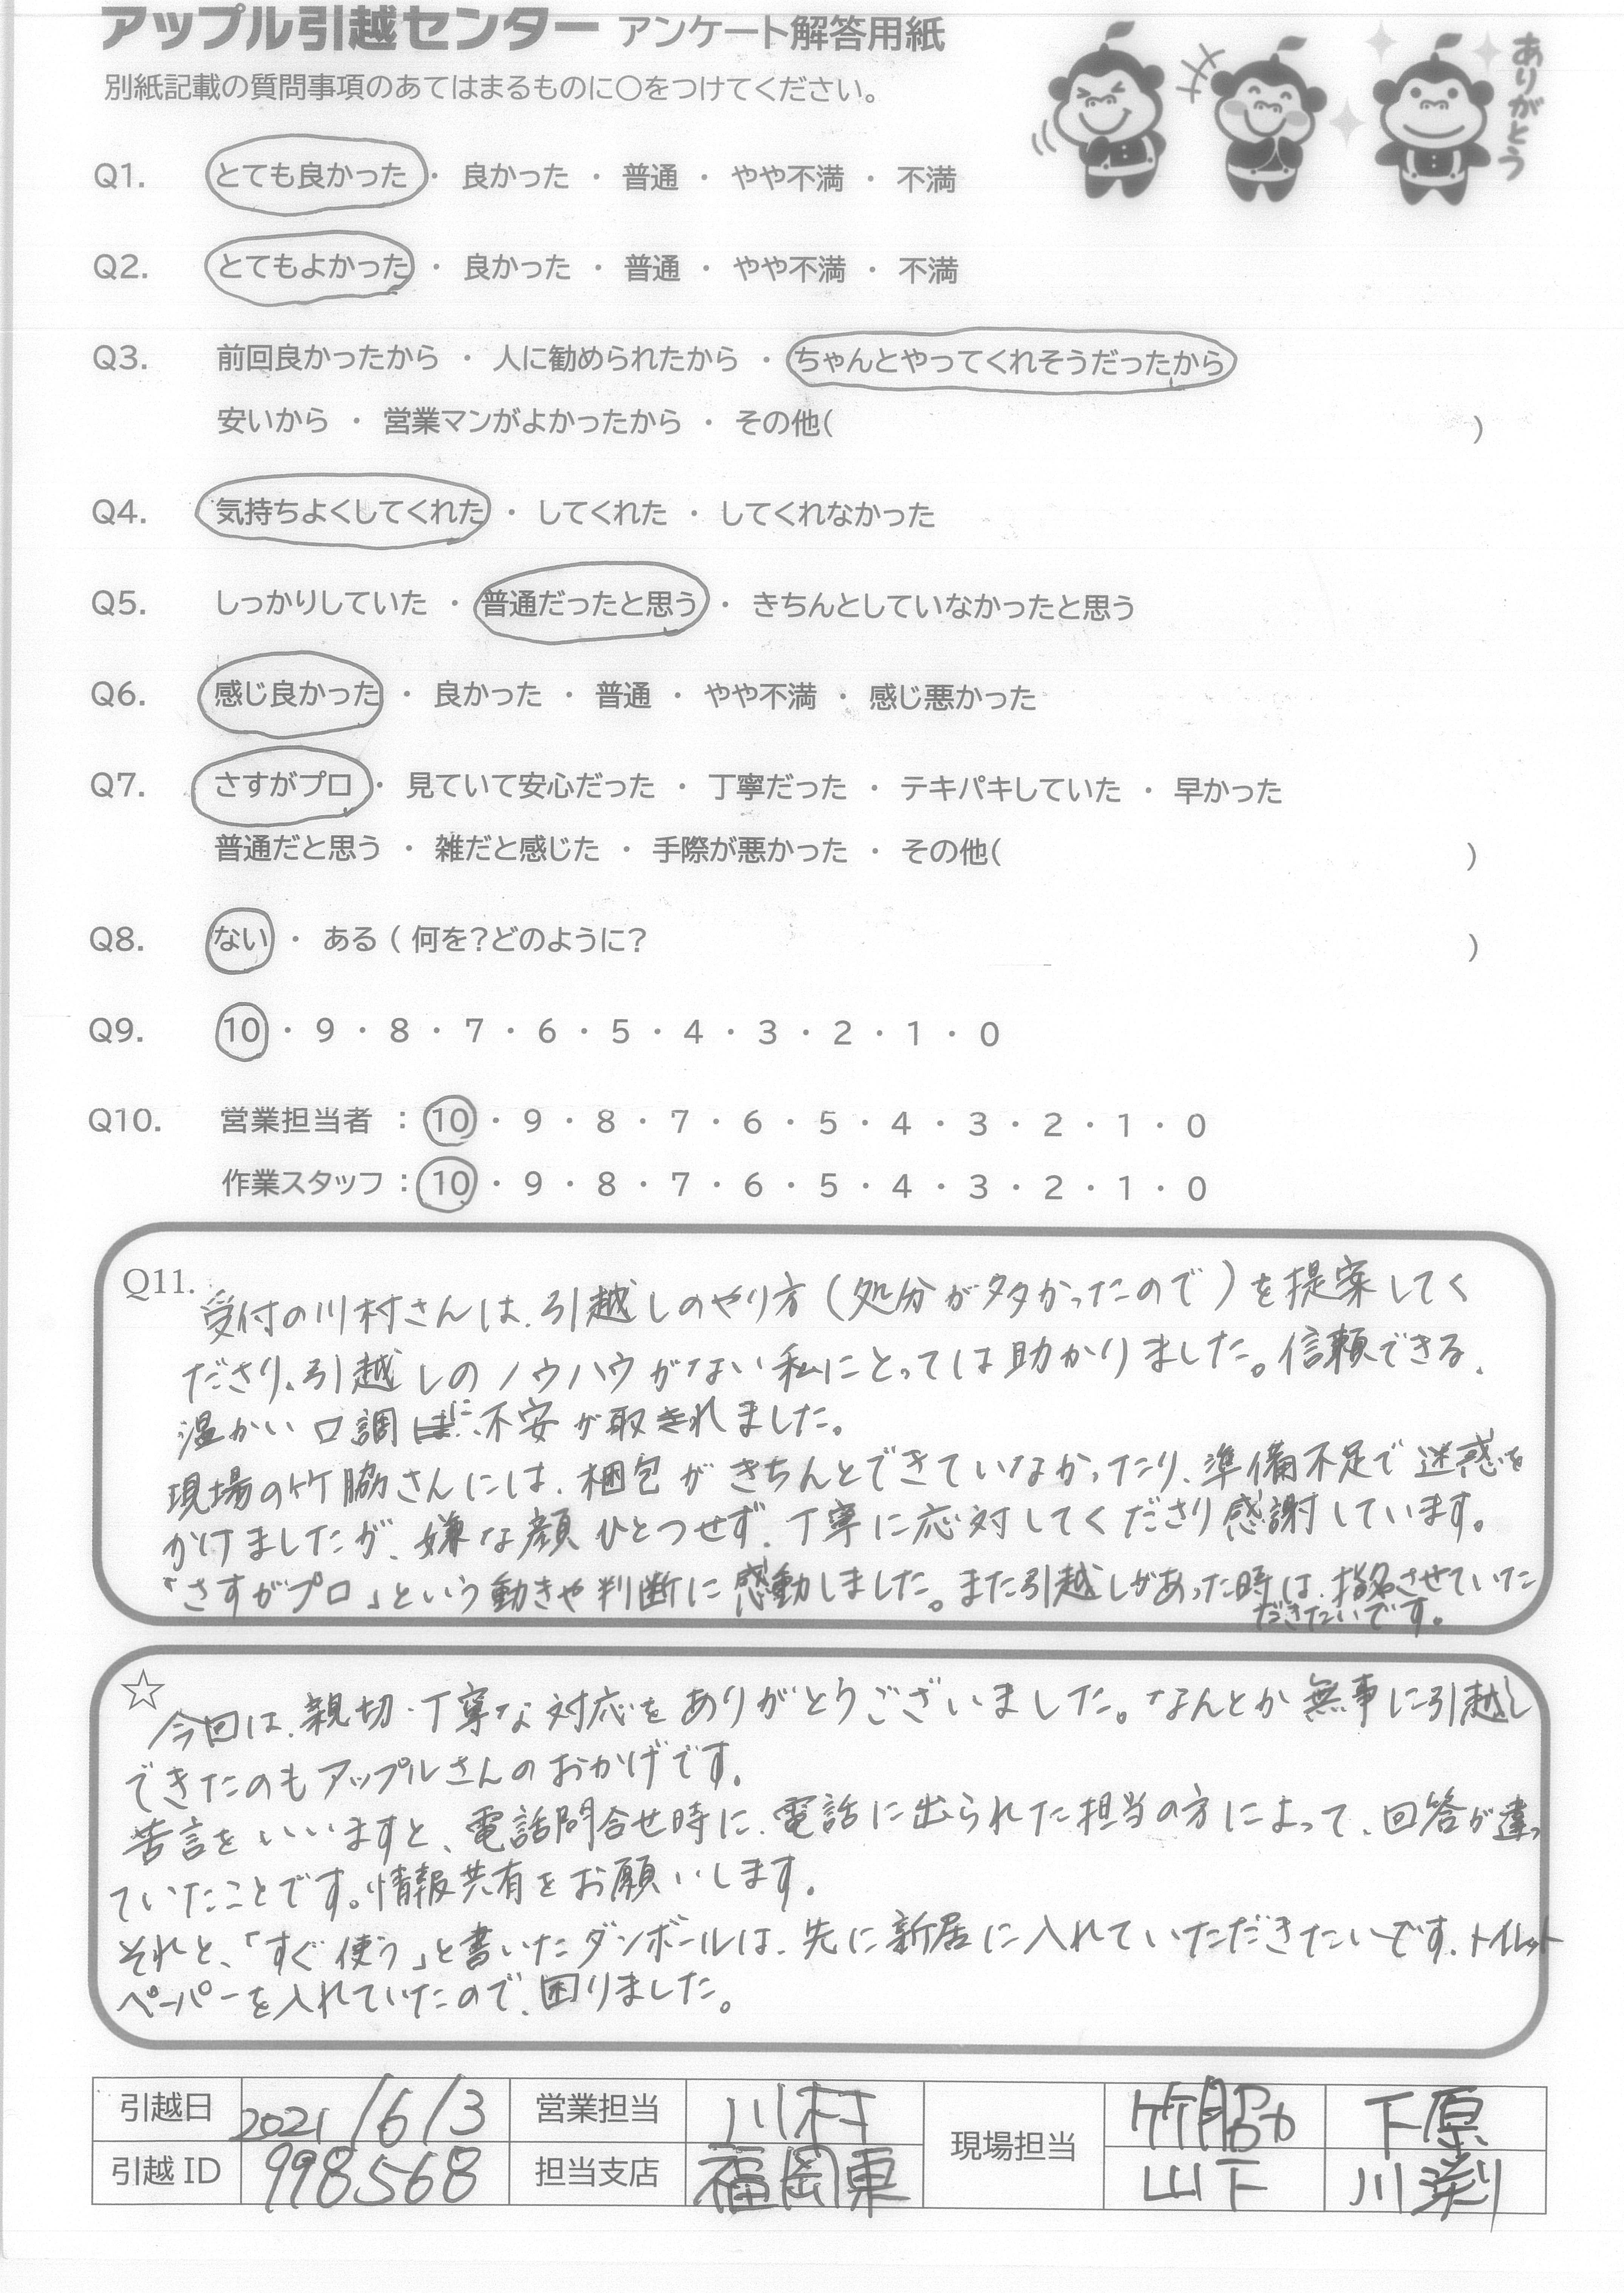 アップル引越センター アンケート解答用紙
別紙記載の質問事項のあてはまるものに〇をつけてください。
ありがとう
Q1. とても良かった ・ 良かった ・ 普通 ・ やや不満 ・ 不満
Q2. とてもよかった ・ 良かった ・ 普通 ・ やや不満 ・ 不満
Q3. 前回良かったから ・ 人に勧められたから ・ ちゃんとやってくれそうだったから
安いから ・ 営業マンがよかったから ・ その他( )
Q4. 気持ちよくしてくれた ・ してくれた ・ してくれなかった
Q5. しっかりしていた ・ 普通だったと思う ・ きちんとしていなかったと思う
Q6. 感じ良かった ・ 良かった ・ 普通 ・ やや不満 ・ 感じ悪かった
Q7. さすがプロ ・ 見ていて安心だった ・ 丁寧だった ・ テキパキしていた ・ 早かった
普通だと思う ・ 雑だと感じた ・ 手際が悪かった ・ その他( )
Q8. ない ・ ある ( 何を?どのように? )
Q9. 10 ・ 9 ・ 8 ・ 7 ・ 6 ・ 5 ・ 4 ・ 3 ・ 2 ・ 1 ・ 0
Q10. 営業担当者 : 10 ・ 9 ・ 8 ・ 7 ・ 6 ・ 5 ・ 4 ・ 3 ・ 2 ・ 1 ・ 0
作業スタッフ : 10 ・ 9 ・ 8 ・ 7 ・ 6 ・ 5 ・ 4 ・ 3 ・ 2 ・ 1 ・ 0
Q11. 受付の川村さんは、引越しのやり方(処分が多かったので)を提案してく
ださり、引越しのノウハウがない私にとっては助かりました。信頼できる、
温かい口調に、不安が取されました。
現場の竹脇さんには、梱包がきちんとできていなかったり、準備不足で迷惑を
かけましたが、嫌な顔ひとつせず、丁寧に応対してくださり感謝しています。
「さすがプロ」という動きや判断に感動しました。また引越しがあった時は、指名させていた
だきたいです。
☆ 今回は、親切・丁寧な対応をありがとうございました。なんとか無事に引越し
できたのもアップルさんのおかげです。
苦言をいいますと、電話問合せ時に、電話に出られた担当の方によって、回答が違っ
ていたことです。情報共有をお願いします。
それと、「すぐ使う」と書いたダンボールは、先に新居に入れていただきたいです。トイレット
ペーパーを入れていたので、困りました。
引越日 2021/6/3 営業担当 川村 現場担当 竹脇 下原
引越ID 998568 担当支店 福岡東 山下 川渕